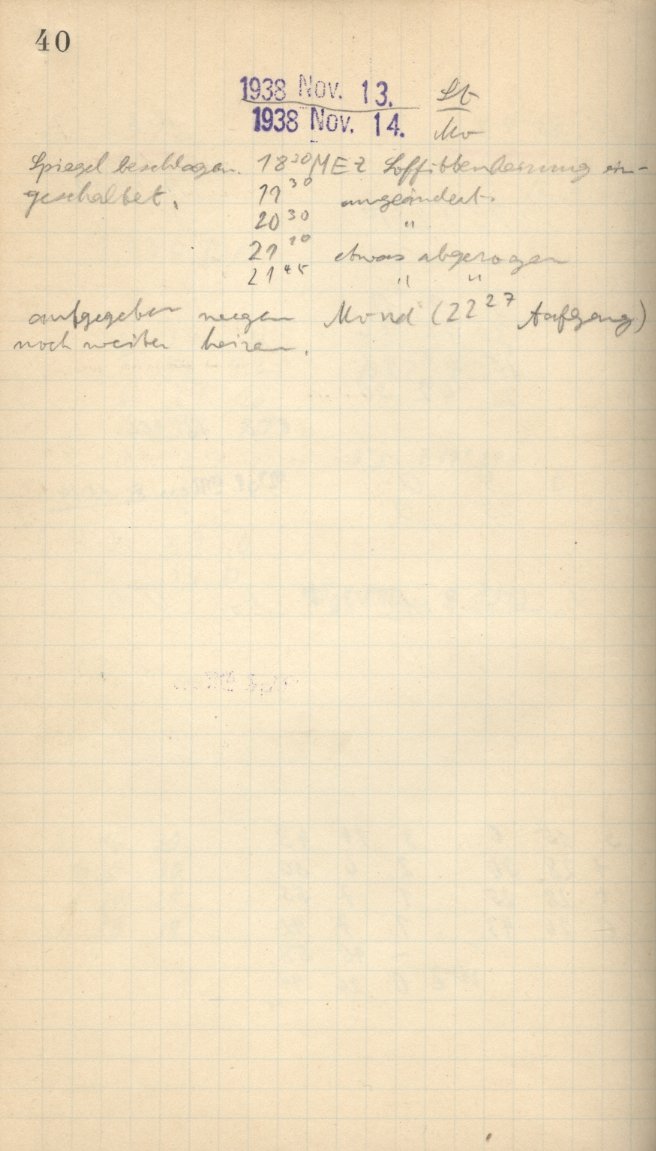 40
1938 Nov. 13. St
1938 Nov. 14. Mo
Spiegel beschlagen. 18³⁰ MEZ Soffittenheizung ein-
geschaltet. 19³⁰ ungeändert.
20³⁰ "
21¹⁰ etwas abgezogen
21⁴⁵ " "
aufgegeben wegen Mond (22²⁷ Aufgang)
noch weiter heizen.